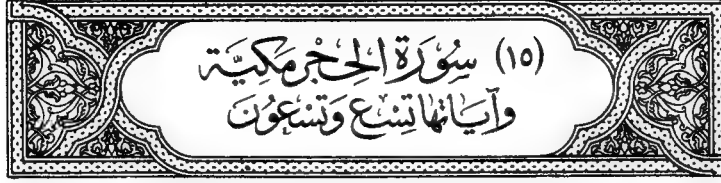 (١٥) سُورَةُ الحِجْرِ مَكِيَّة
وَآيَاتهَا تِسْع وَتِسْعُونَ